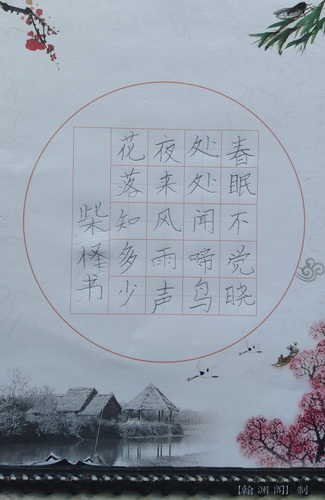 春眠不觉晓
处处闻啼鸟
夜来风雨声
花落知多少
柴怿书
【翰渊阁】制